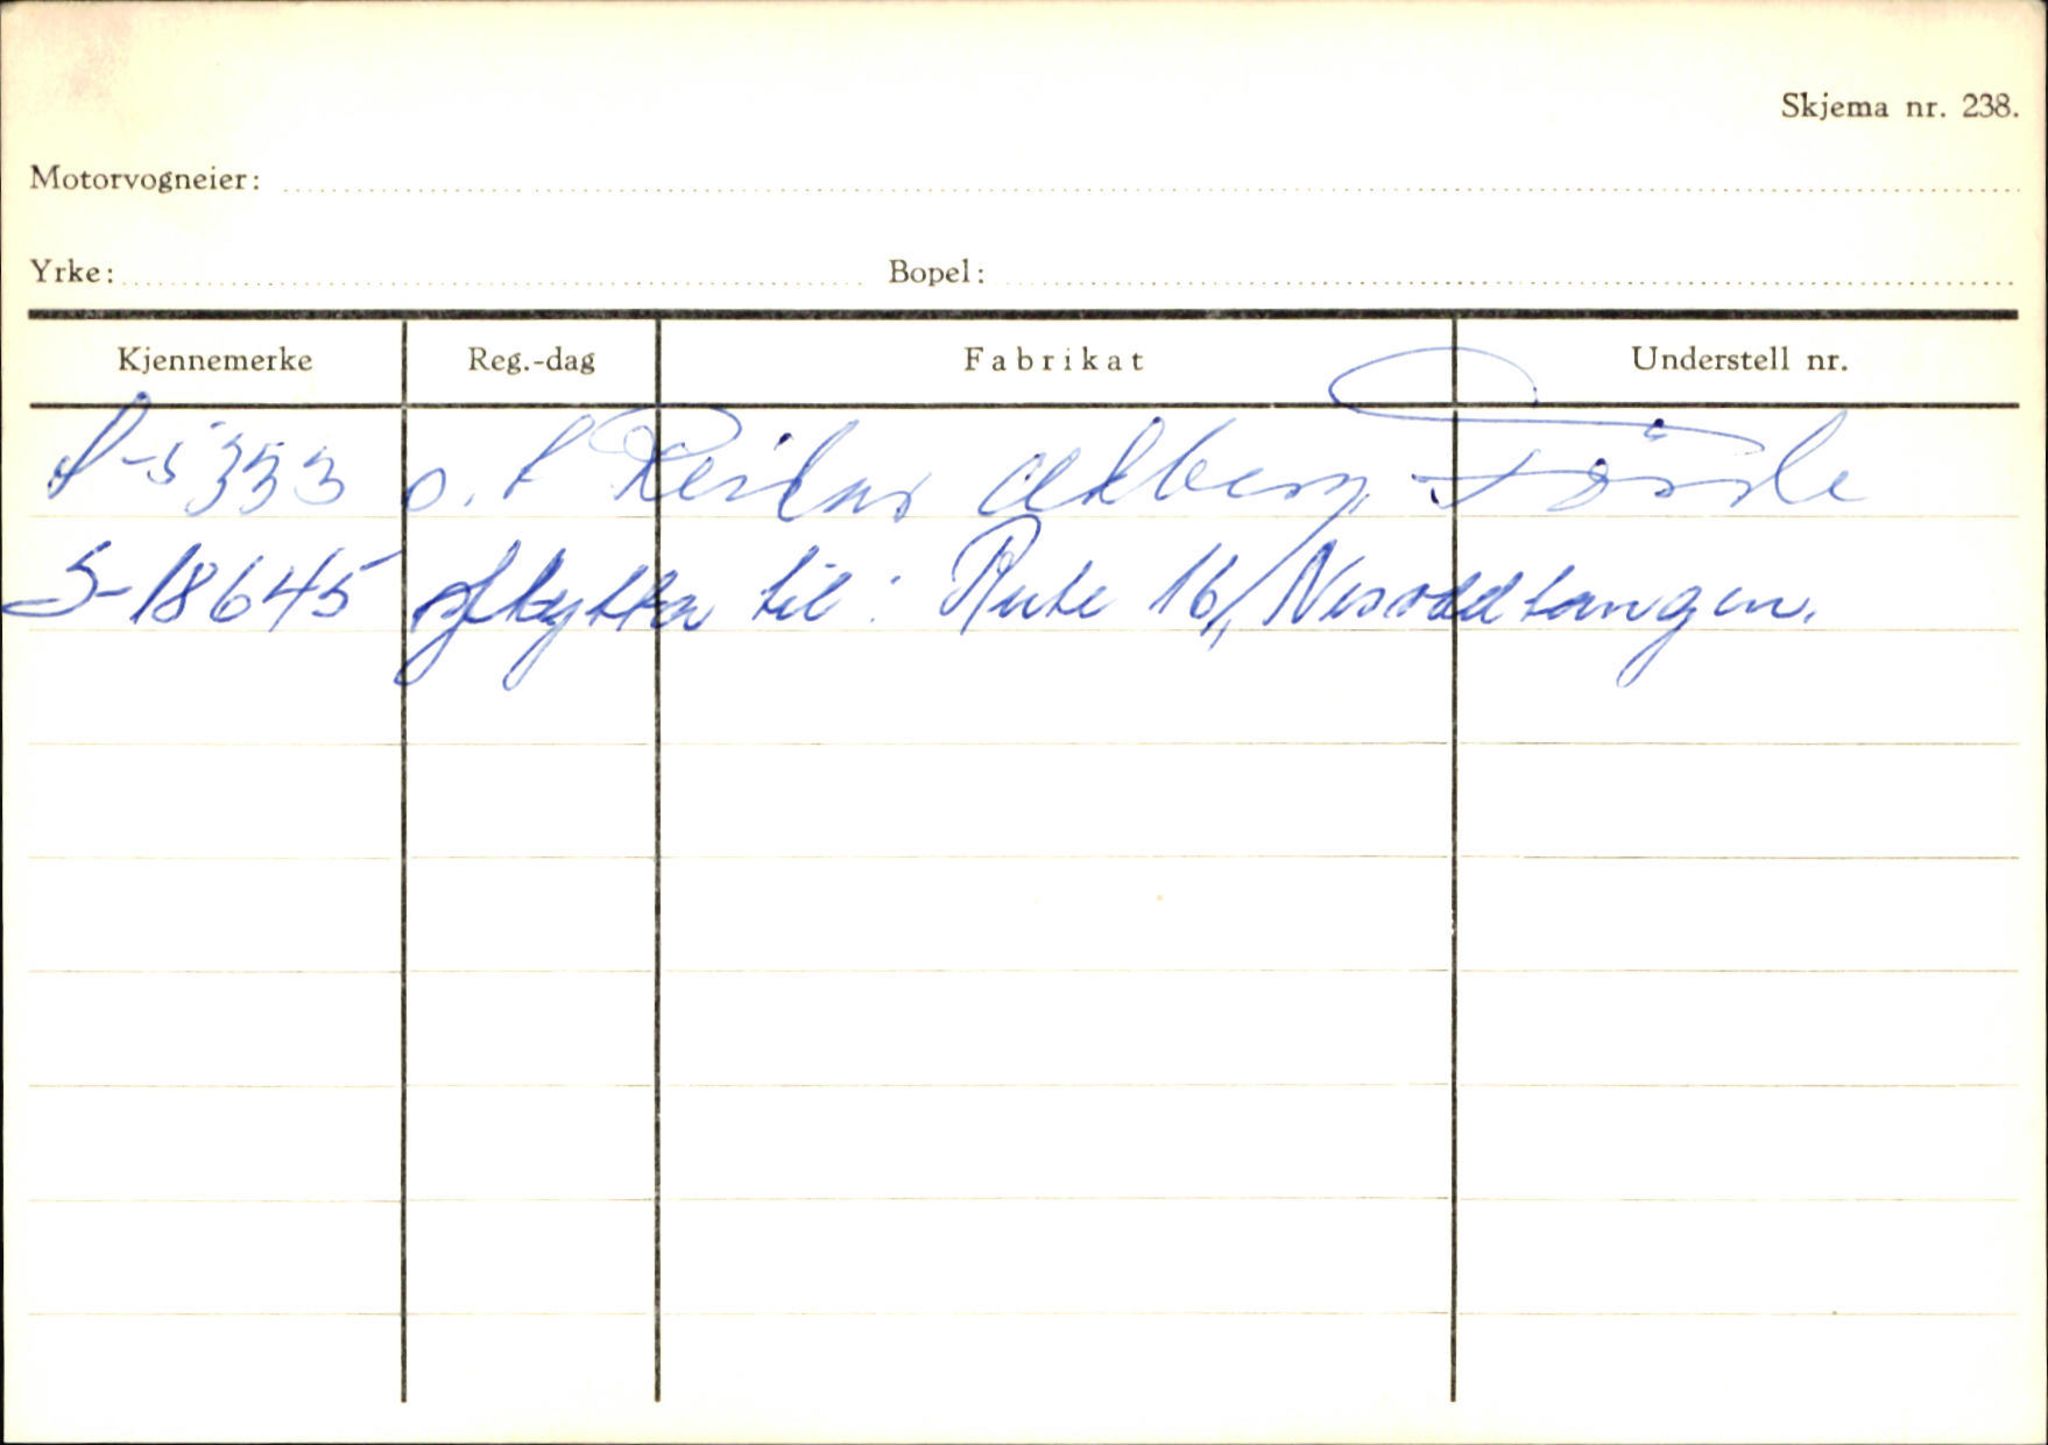 Skjema nr. 238.
Motorvogneier:
Yrke: Bopel:
Kjennemerke Reg.-dag Fabrikat Understell nr.
S-5353 o. t Reidar Førde
S-18645 flytta til: Rute 16, Nesoddtangen.